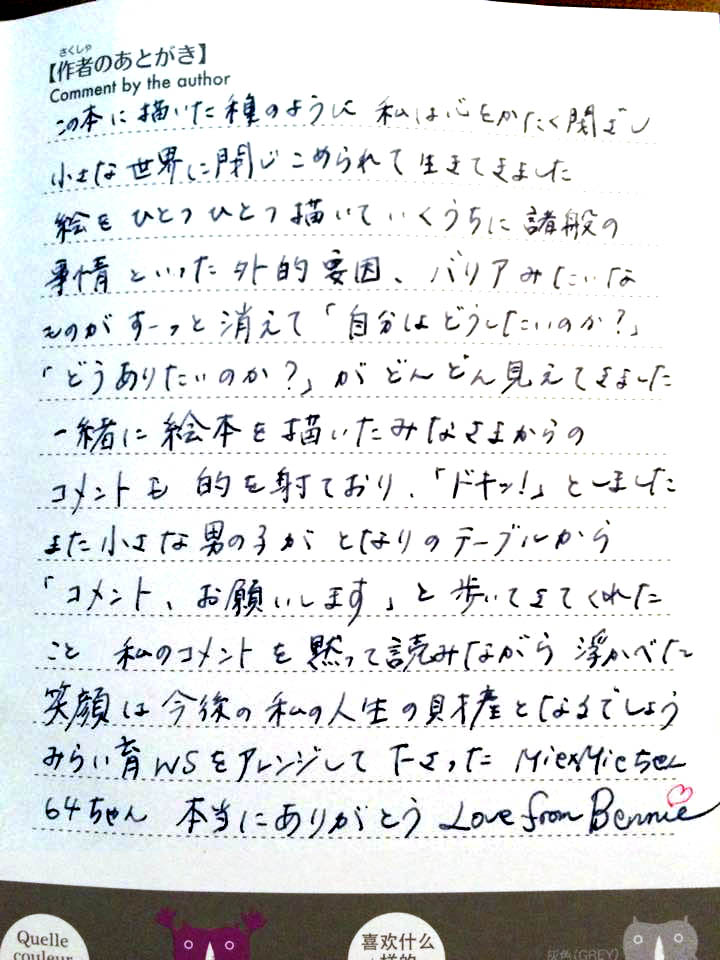 さくしゃ
【作者のあとがき】
Comment by the author
この本に描いた種のように 私は心をかたく閉ざし
小さな世界に閉じこめられて生きてきました
絵をひとつひとつ描いていくうちに諸般の
事情といった外的要因、バリアみたいな
ものがすーっと消えて「自分はどうしたいのか?」
「どうありたいのか?」がどんどん見えてきました
一緒に絵本を描いたみなさまからの
コメントも 的を射ており、「ドキッ!」としました
また小さな男の子がとなりのテーブルから
「コメント、お願いします」と歩いてきてくれた
こと 私のコメントを黙って読みながら浮かべた
笑顔は今後の私の人生の財産となるでしょう
みらい育WSをアレンジして下さった MieMieちゃん
64ちゃん 本当にありがとう Love from Bennie
Quelle
couleur
喜欢什么
样的
灰色(GREY)